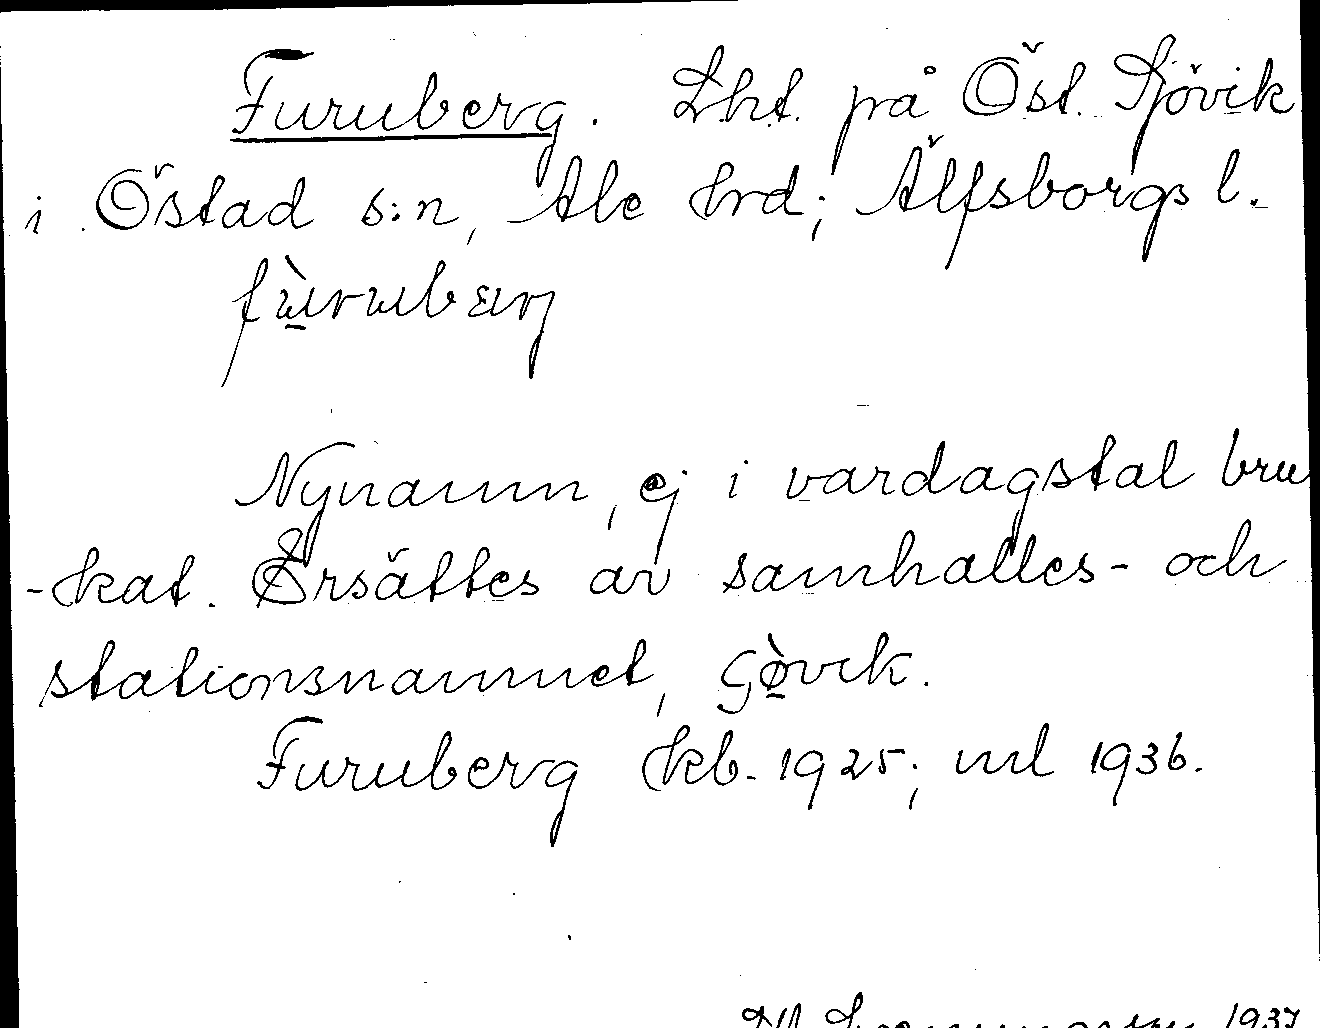 Furuberg. Lht. på Öst. Sjövik
i Östad s:n, Ale hrd; Älfsborgs l.
fùrubærj
Nynamn, ej i vardagstal bru
-kat. Ersättes av samhälles- och
stationsnamnet, Sö̀vik.
Furuberg kb. 1925; ml 1936.
1937